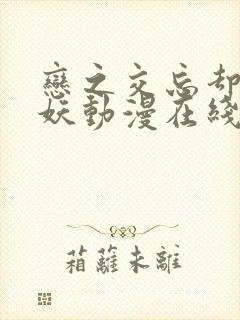 戀之交忘却
妖動漫在綫
箱蘺未離